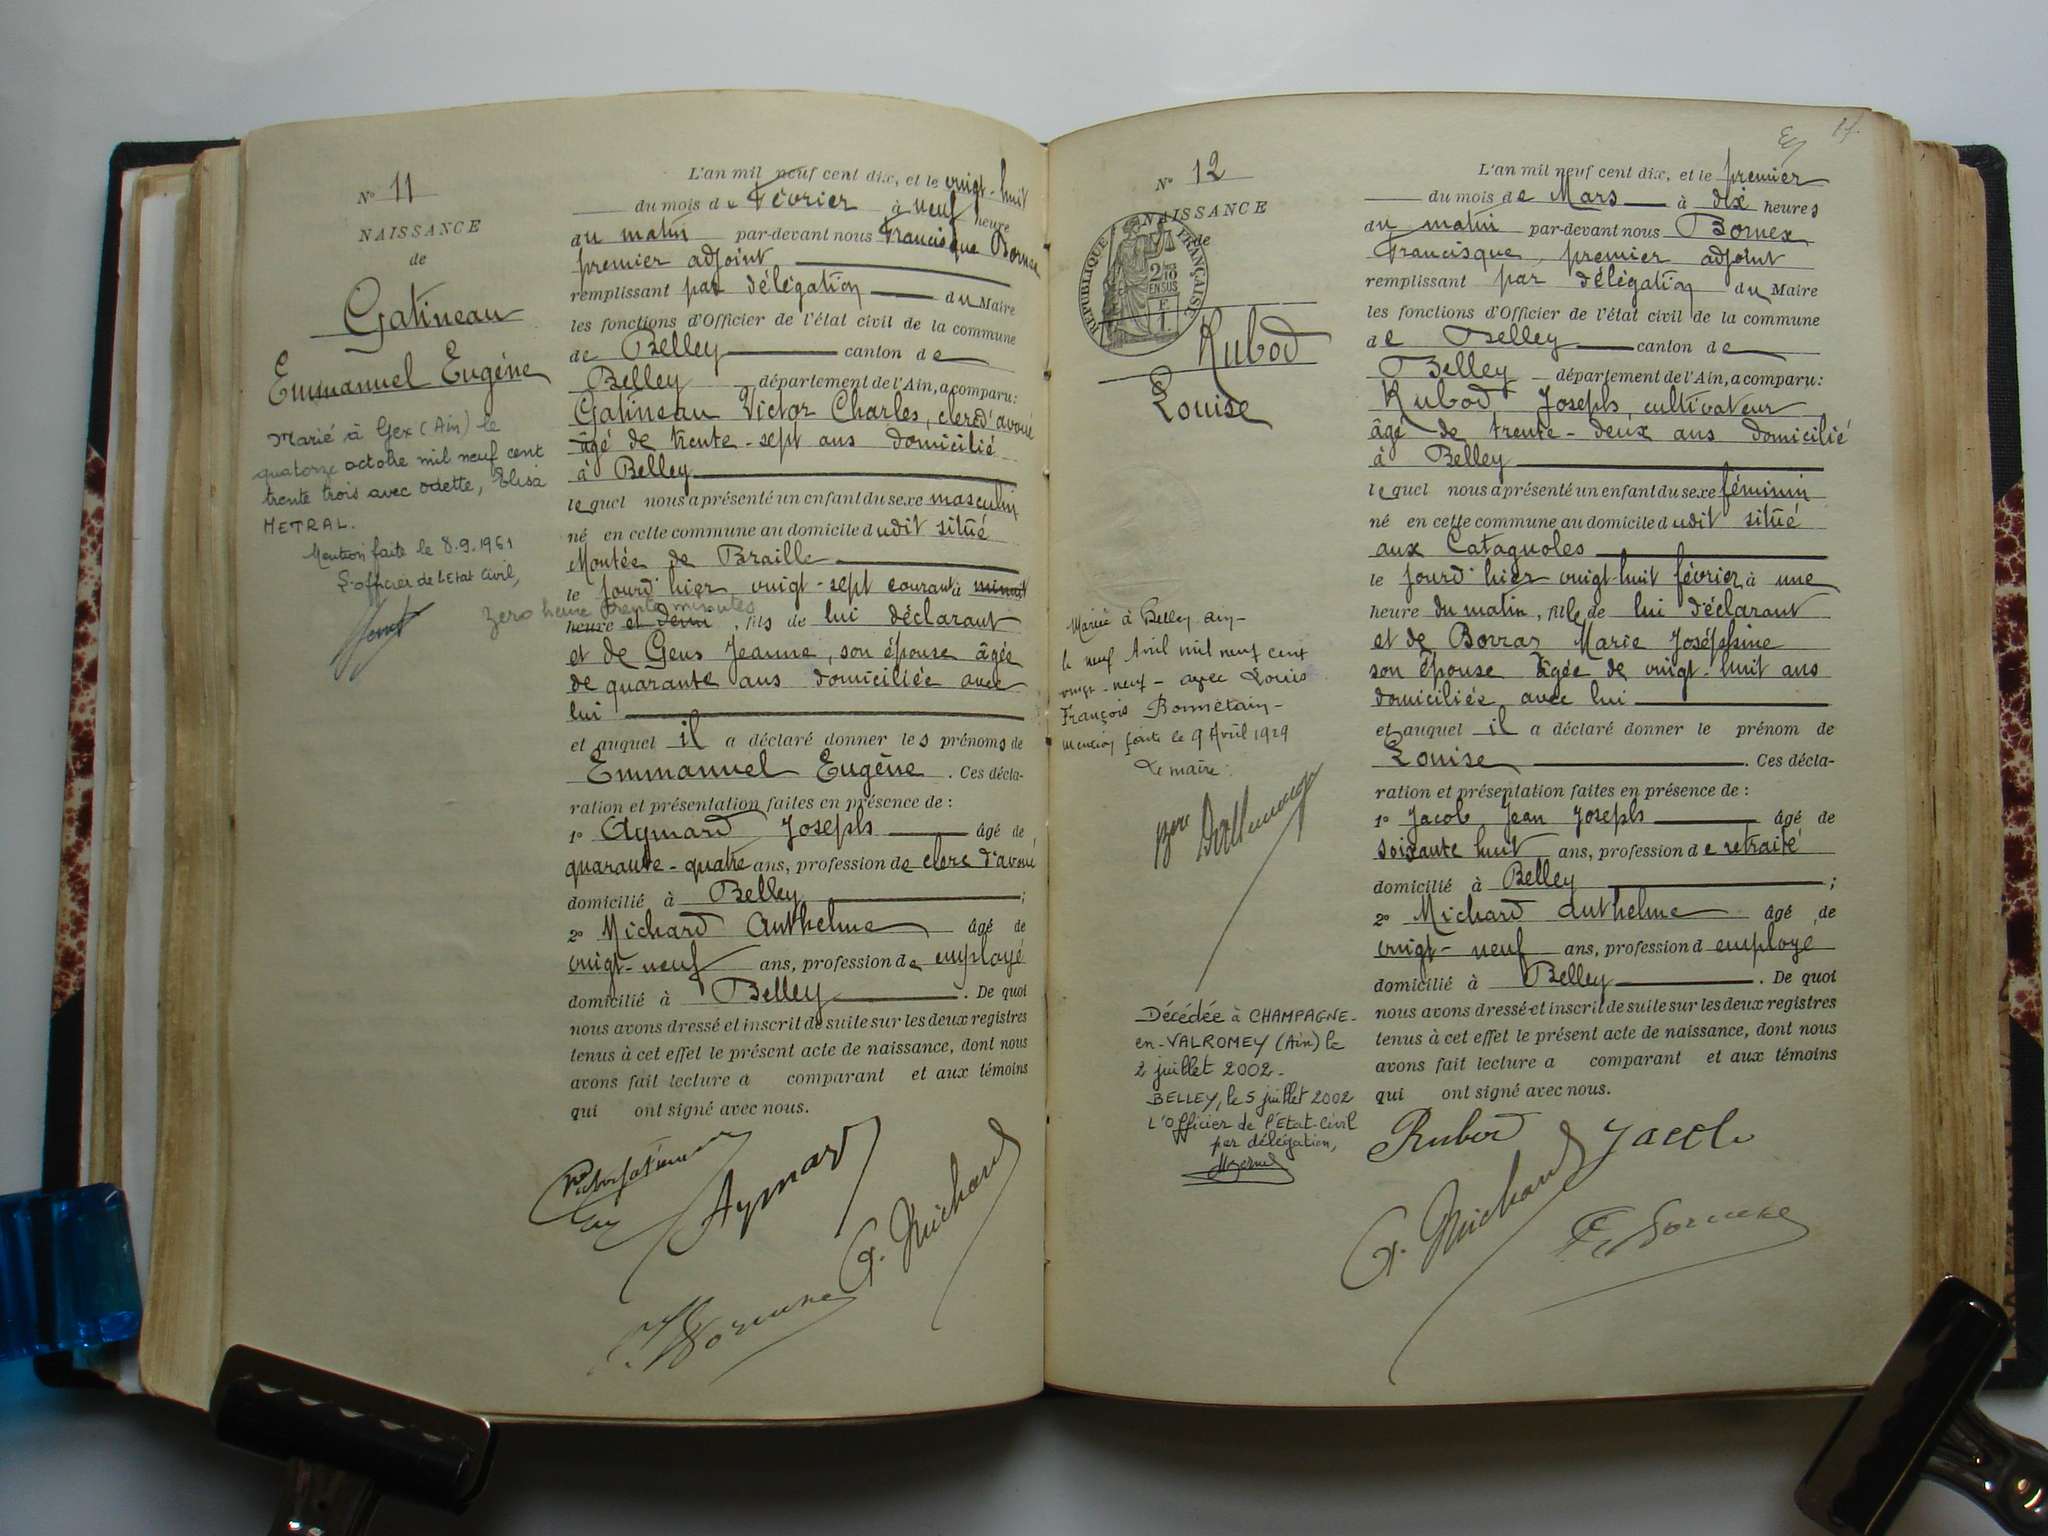 N° 11
NAISSANCE
de
Gatineau
Emmanuel Eugène
Marié à Gex (Ain) le
quatorze octobre mil neuf cent
trente trois avec Odette, Elisa
METRAL.
Mention faite le 8.9.1961
L'officier de l'Etat Civil,
L'an mil neuf cent dix, et le vingt-huit
du mois de Février à neuf heure
du matin par-devant nous Francisque Bornex
premier adjoint
remplissant par délégation du Maire
les fonctions d'Officier de l'état civil de la commune
de Belley canton de
Belley département de l'Ain, a comparu:
Gatineau Victor Charles, clerc d'avoué
âgé de trente-sept ans domicilié
à Belley
lequel nous a présenté un enfant du sexe masculin
né en cette commune au domicile dudit situé
Montée de Braille
le jourd'hier vingt-sept courant à minuit
zero heure trente minutes
heure et demi, fils de lui déclarant
et de Gens Jeanne, son épouse âgée
de quarante ans domiciliée avec
lui
et auquel il a déclaré donner les prénoms de
Emmanuel Eugène. Ces décla-
ration et présentation faites en présence de :
1° Aymard Joseph âgé de
quarante-quatre ans, profession de clerc d'avoué
domicilié à Belley ;
2° Michard Anthelme âgé de
vingt-neuf ans, profession de employé
domicilié à Belley. De quoi
nous avons dressé et inscrit de suite sur les deux registres
tenus à cet effet le présent acte de naissance, dont nous
avons fait lecture a comparant et aux témoins
qui ont signé avec nous.
Aymard
A. Michard
17.
N° 12
NAISSANCE
de
RÉPUBLIQUE FRANÇAISE
2/10
EN SUS
F.
1.
Rubod
Louise
Mariée à Belley Ain-
le neuf Avril mil neuf cent
vingt-neuf - avec Louis
François Bonnétain-
Mention faite le 9 Avril 1929
Le maire:
Décédée à CHAMPAGNE-
en-VALROMEY (Ain) le
2 juillet 2002-
BELLEY, le 5 juillet 2002
L'Officier de l'Etat-Civil
par délégation,
L'an mil neuf cent dix, et le premier
du mois de Mars à dix heures
du matin par-devant nous Bornex
Francisque, premier adjoint
remplissant par délégation du Maire
les fonctions d'Officier de l'état civil de la commune
de Belley canton de
Belley département de l'Ain, a comparu:
Rubod Joseph, cultivateur
âgé de trente-deux ans domicilié
à Belley
lequel nous a présenté un enfant du sexe féminin
né en cette commune au domicile dudit situé
aux Catagnoles
le jourd'hier vingt-huit février à une
heure du matin, fille de lui déclarant
et de Borraz Marie Joséphine
son épouse âgée de vingt-huit ans
domiciliée avec lui
et auquel il a déclaré donner le prénom de
Louise. Ces décla-
ration et présentation faites en présence de :
1° Jacob Jean Joseph âgé de
soixante huit ans, profession de retraité
domicilié à Belley ;
2° Michard Anthelme âgé de
vingt-neuf ans, profession d employé
domicilié à Belley. De quoi
nous avons dressé et inscrit de suite sur les deux registres
tenus à cet effet le présent acte de naissance, dont nous
avons fait lecture a comparant et aux témoins
qui ont signé avec nous.
Rubod Jacob
A. Michard